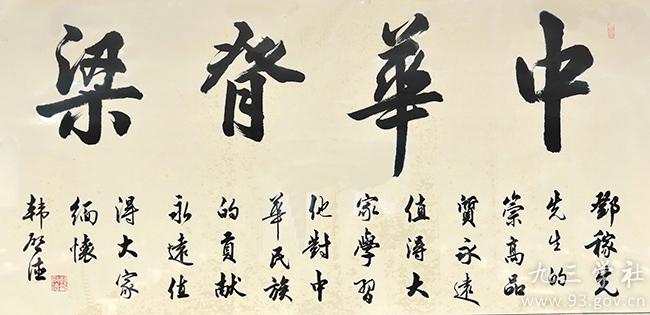 中華脊梁
鄧稼先
先生的
崇高品
質永遠
值得大
家學習
他對中
華民族
的貢献
永遠值
得大家
緬懷
韩启德
九三学社
www.93.gov.cn